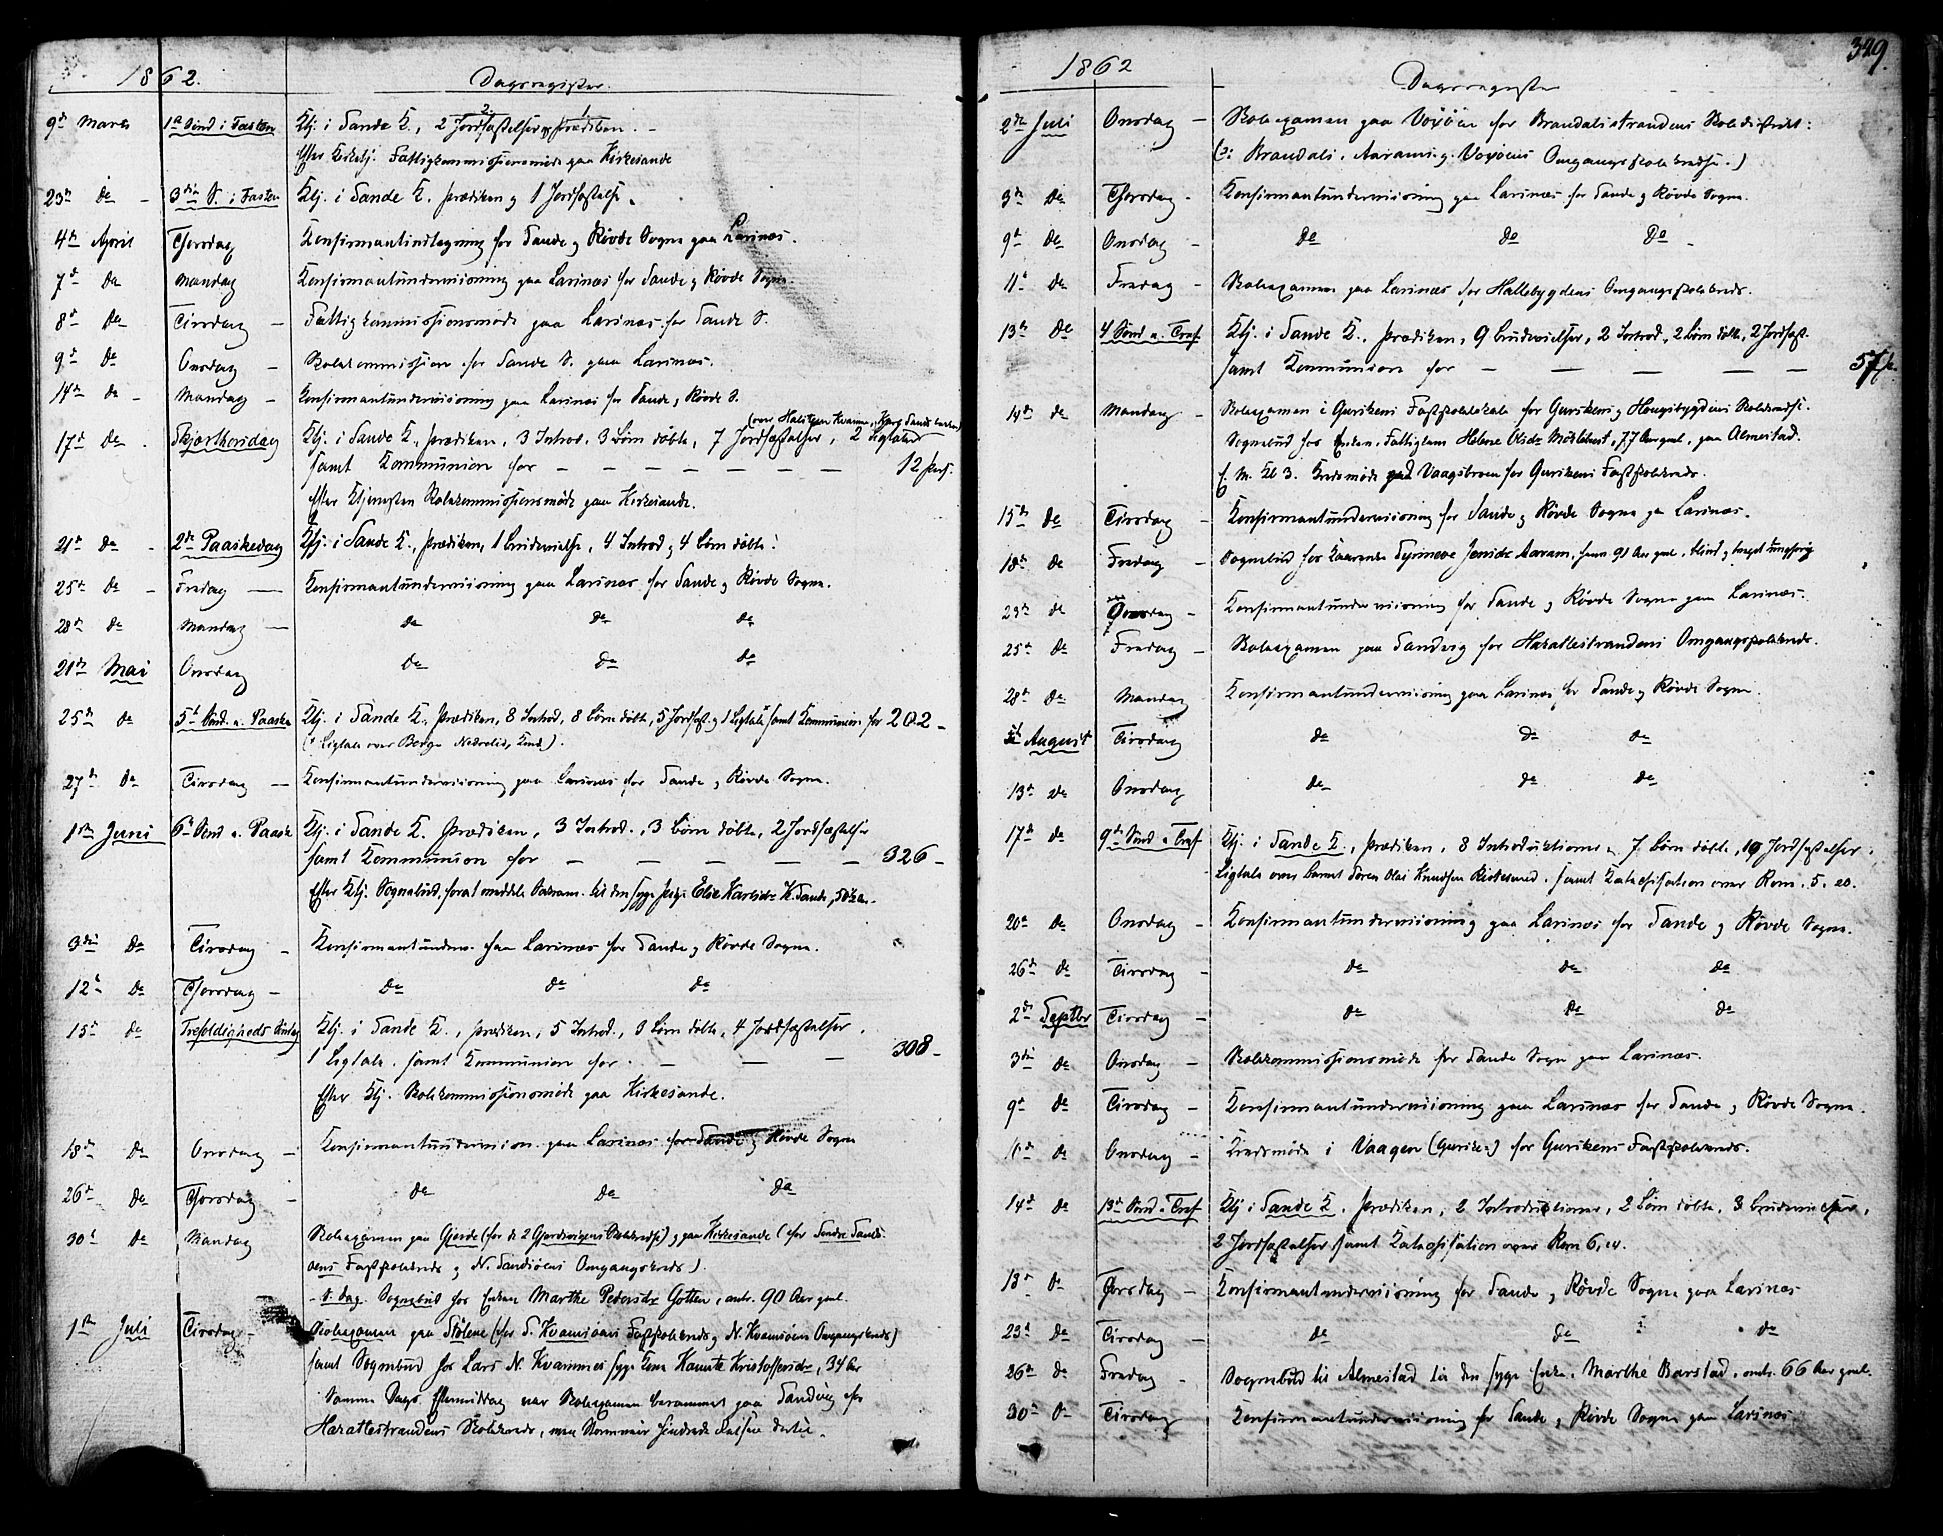 1862. Dagsregister.
9de Marts 1ste Sønd i Fasten Ktj. i Sande K., 2 Jordfæstelser og Prædiken. -
Efter Kirketj. Fattigkommissionsmøde paa Kirkesande
23de do - 3die S. i Fasten Ktj. i Sande K. Prædiken og 1 Jordfæstelse.
4de April Konfirmantindtegning for Sande og Røvde Sogne paa Larsnæs.
7de do Mandag Konfirmantundervisning paa Larsnæs for Sande og Røvde Sogne.
8de do Tirsdag - Fattigkommissionsmøde paa Larsnæs for Sande S.
9de do Onsdag - Skolekommission for Sande S. paa Larsnæs.
14de do - Mandag - Konfirmantundervisning paa Larsnæs for Sande og Røvde S.
17de do - Skjærthorsdag Ktj. i Sande K., Prædiken, 3 Introd. 3 Børn døbte, 7 Jordfæstelser, 2 Ligtaler
samt Kommunion for - - - - - - - 12 Pers.
Efter Ktjenesten Skolekommissionsmøde paa Kirkesande.
21de do - 2den Paaskedag Ktj. i Sande K., Prædiken, 1 Brudevielse, 4 Introd. og 4 Børn døbte.
25de do - Fredag - Konfirmantundervisning paa Larsnæs for Sande og Røvde Sogne.
28de do Mandag - do do do
21de Mai Onsdag do do do
25de do 5te Sønd. e. Paaske Ktj. i Sande K., Prædiken, 8 Introd., 8 Børn døbte, 5 Jordf. og 1 Ligtale samt Kommunion for 202 -
27de do Tirsdag - Konfirmantundervisning paa Larsnæs for Sande og Røvde Sogne.
1ste Juni 6te Sønd e. Paaske Ktj. i Sande K. Prædiken, 3 Introd., 3 Børn døbte, 2 Jordfæstelser
samt Kommunion for - - - - - 326 -
Efter Ktj. Sognebud, for at meddele Sakram. til den syge Pige Elie Karlsdr K. Sande,
3die do Tirsdag - Konfirmantunderv. paa Larsnæs for Sande og Røvde Sogne.
12te do Thorsdag - do do do
15de do Trefoldigheds Søndag Ktj. i Sande K., Prædiken, 5 Introd., Børn døbte, 4 Jordfæstelser.
1 Ligtale. samt Kommunion for - - - 308 -
Efter Ktj. Skolekommissionsmøde paa Kirkesande.
18de do Onsdag - Konfirmantundervisn. paa Larsnæs for Sande og Røvde Sogne
26de do Thorsdag - do do do
30te do Mandag Skoleexamen paa Gjerde (for de 2 Gjerdsvigens Skolekredse) og paa Kirkesande (for Søndre Sands-
øens Fastskolekreds og N. Sandsøens Omgangskreds).
- S. Dag. Sognebud for Enken Marthe Pedersdr Gotten, omtr. 90 Aar gml.
1ste Juli Tirsdag - Skoleexamen paa Stølene (for S. Kvamsøens Fastskolekreds og N. Kvamsøens Omgangskreds)
samt Sognebud for Lars N. Kvamme's syge Kone Hanna Kristoffersdr, 34 Aar
Samme Dags Eftermiddag var Skoleexamen berammet paa Sandvig for
Haratlestrandens Skolekreds, men Stormveir hindrede Reisen dertil.
1862 Dagsregister 329.
2den Juli Onsdag - Skoleexamen paa Voxøen for Brandalsstrandens Skoledistrikt:
(o: Brandals, Aarams og Voxøens Omgangsskolekredse.)
3de do Thorsdag - Konfirmantundervisning paa Larsnæs for Sande og Røvde Sogne.
9de do Onsdag - do do do -
11te do Fredag - Skoleexamen paa Larsnæs for Hallebygdens Omgangsskolekreds.
13de do 4 Sønd e. Tref. Ktj. i Sande K., Prædiken, 9 Brudevielser, 2 Introd., 2 Børn døbte, 2 Jordf.
samt Kommunion for - - - - -
14de do Mandag - Skoleexamen i Gurskens Fastskolelokale for Gurskens og Haugsbygdens Skolekredse.
Sognebud for Enken, Fattiglem Helene Olsdr Møklebust, 77 Aar gml., paa Almestad.
E. M. Kl 3. Kredsmøde paa Vaagsbroen for Gurskens Fastskolekreds.
15de do Tirsdag - Konfirmantundervisning for Sande og Røvde Sogne paa Larsnæs.
18de do Fredag - Sognebud for Synneve Jensdr Aaram, 91 Aar gml., blind og meget tunghørig
23de do Onsdag - Konfirmantundervisning for Sande og Røvde Sogne paa Larsnæs.
25de do Fredag - Skoleexamen paa Sandvig for Haratlestrandens Omgangsskolekreds.
28de do Mandag Konfirmantundervisning paa Larsnæs for Sande og Røvde Sogne.
August Tirsdag do do do
13de do Onsdag do do do
17de do 9de Sønd e Tref Ktj. i Sande K., Prædiken, 8 Introduktioner, 7 Børn døbte, 10 Jordfæstelser.
Ligtale over Barnet Søren Olai Knudsen samt Katechisation over Rom. 5.
20de do Onsdag - Konfirmantundervisning paa Larsnæs for Sande og Røvde Sogne.
26de do Tirsdag - do do do
2den Septbr Tirsdag - do do do
3die do Onsdag - Skolekommissionsmøde for Sande Sogn paa Larsnæs.
9de do Tirsdag - Konfirmantundervisning paa Larsnæs for Sande og Røvde Sogne.
10de do Onsdag - Kredsmøde i Vaagen (Gursken) for Gurskens Fastskolekreds.
14de do 13de Sønd e Tref Ktj i Sande K. Prædiken, 2 Introduktioner, 2 Børn døbte, 3 Brudevielser,
2 Jordfæstelser samt Katechisation over Rom 6,
18de do Thorsdag - Konfirmantundervisning for Sande og Røvde Sogne paa Larsnæs
23de do Tirsdag - do do do
26de do Fredag - Sognebud til Almestad til den syge Enke, Marthe Barstad, omtr. 66 Aar gml.
30te do Tirsdag Konfirmantundervisning for Sande og Røvde Sogne paa Larsnæs